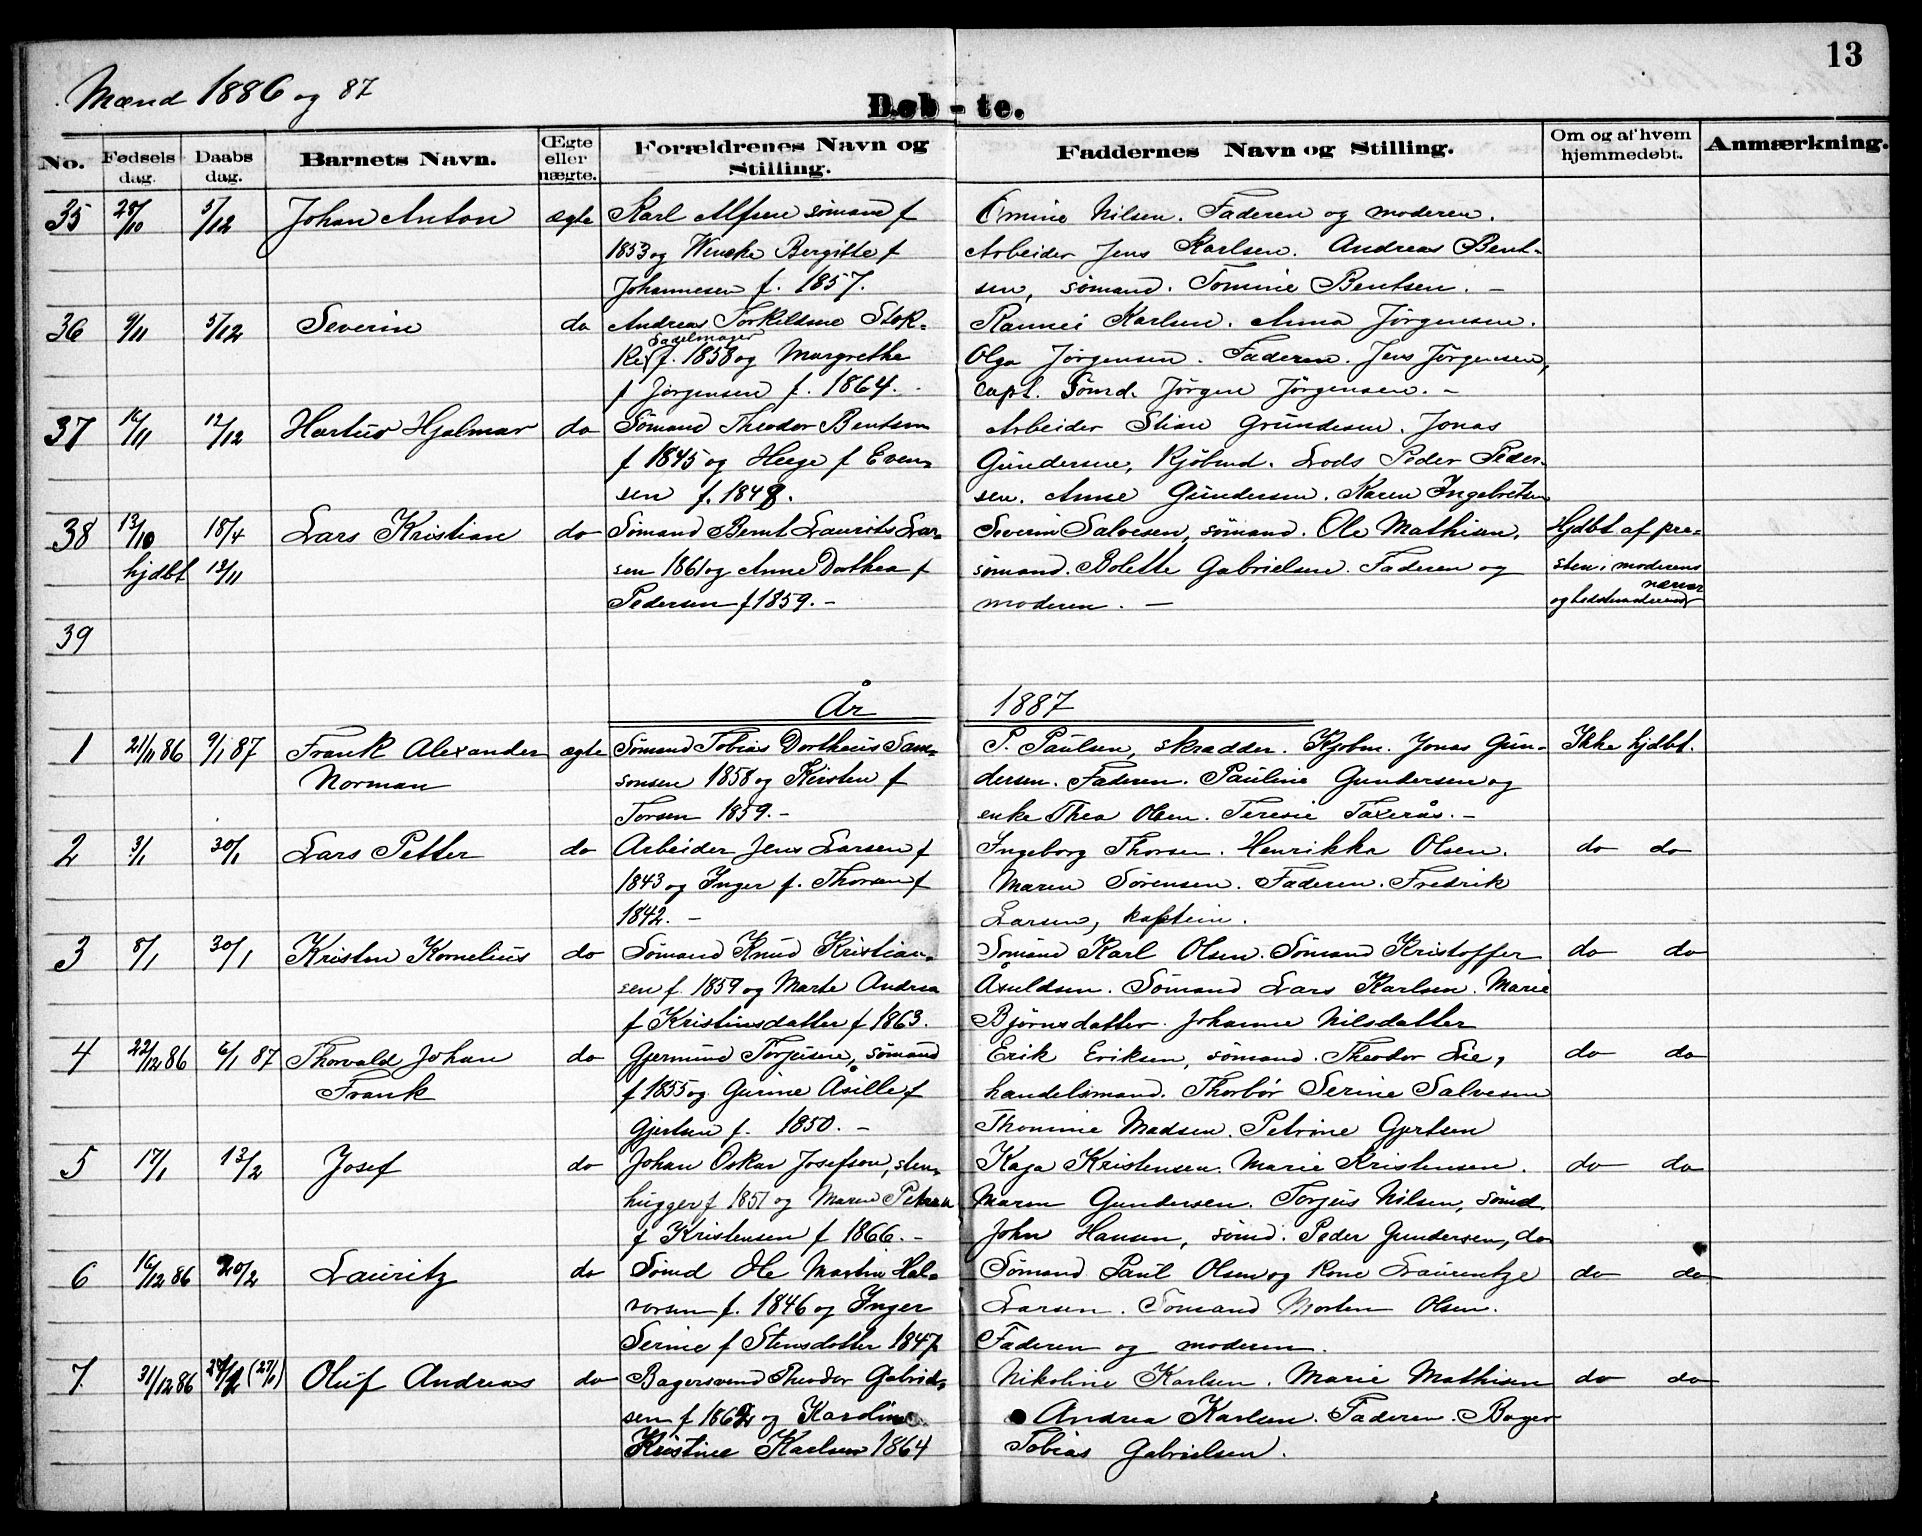 13
Mænd 1886 og 87
Døb - te.
No. Fødsels dag. Daabs dag. Barnets Navn. Œgte eller nægte. Forældrenes Navn og Stilling. Faddernes Navn og Stilling. Om og af hvem hjemmedøbt. Anmærkning.
35 /10 5/12 Johan Anton ægte Karl Alfsen sømand f Omine Nilsen. Faderen og moderen.
1853 og Wencke Bergitte f Arbeider Jens Karlsen. Andreas Bent-
Johannesen f. 1857. sen, sømand. Tomine Bentsen. -
36 9/11 5/12 Severin do Andreas Torkildsen Stok- Karlsen. Anna Jørgensen.
Sadelmager
ke f. 1858 og Margrethe Olga Jørgensen. Faderen. Jens Jørgensen,
f Jørgensen f. 1864. - capt. Sömd. Jörgen Jörgensen. -
37 16/11 12/12 Hartus Hjalmar do Sömand Theodor Bentsen Arbeider Stian Gundersen. Jonas
f 1845 og Hege f Even- Gundersen, Kjøbmd. Lods Peder Peder-
sen f. 1848. sen. Anne Gundersen. Karen Ingebretsen
38 13/10 18/4 Lars Kristian do Sömand Bernt Laurits Lar- Severin Salvesen, sømand. Ole Mathisen, Hjdbt af pre-
hjdbt 13/11 sen 1861 og Anne Dorthea f sömand. Bolette Gabrielsen. Faderen og sten i moderens
Pedersen f 1859. - moderen. - nærvær
og
39
År 1887
1 21/11 86 9/1 87 Frank Alexander ægte Sömand Tobias Dortheus Sam- P. Paulsen, skrædder. Kjøbm. Jonas Gun- Ikke hjdbt.
Norman sonsen 1858 og Kirsten f dersen. Faderen. Pauline Gundersen og
Torsen 1859. - enke Thea Olsen. Teresie Taxerås. -
2 3/1 30/1 Lars Petter do Arbeider Jens Larsen f Ingeborg Thorsen. Henrikka Olsen. do do
1843 og Inger f. Thorsen f Maren Sörensen. Faderen. Fredrik
1842. - Larsen, kaptein.
3 8/1 30/1 Kristen Kornelius do Sömand Knud Kristian- Sömand Karl Olsen. Sömand Kristoffer do do
sen f. 1859 og Marte Andrea Åsuldsen. Sömand Lars Karlsen. Marie
f Kristinsdatter f 1863. Björnsdatter. Johanne Nilsdatter
4 22/12 86 6/1 87 Thorvald Johan do Gjermund Torjusen, sömand Erik Eriksen, sömand. Theodor Lie, do do
Frank f 1855 og Gurine Åsille f handelsmand. Thorbör Serine Salvesen
Gjertsen f. 1850. - Thomine Madsen. Petrine Gjertsen
5 17/1 13/2 Josef do Johan Oskar Josefson, sten- Kaja Kristensen. Marie Kristensen. do do
hugger f 1851 og Maren Petrea Maren Gundersen. Torjus Nilsen, sömd.
f Kristensen f 1866. - John Hansen, sömd. Peder Gundersen, do
6 16/12 86 20/2 Lauritz do Sömd Ole Martin Hal- Sömand Paul Olsen og kone Laurentze do do
vorsen f. 1846 og Inger Larsen. Sömand Morten Olsen.
Serine f Stensdatter 1847 Faderen og moderen.
7. 31/12 86 (27/1) Oluf Andreas do Bagersvend Theodor Gabriel- Nikoline Karlsen. Marie Mathisen do do
sen f 1862 og Karoline Andrea Karlsen. Faderen. Bager
Kristine Karlsen 1864 Tobias Gabrielsen.